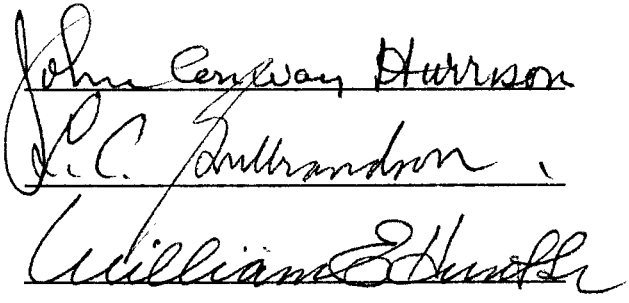 John Conway Harrison
L. C. Gulbrandson
William E Hunt Sr